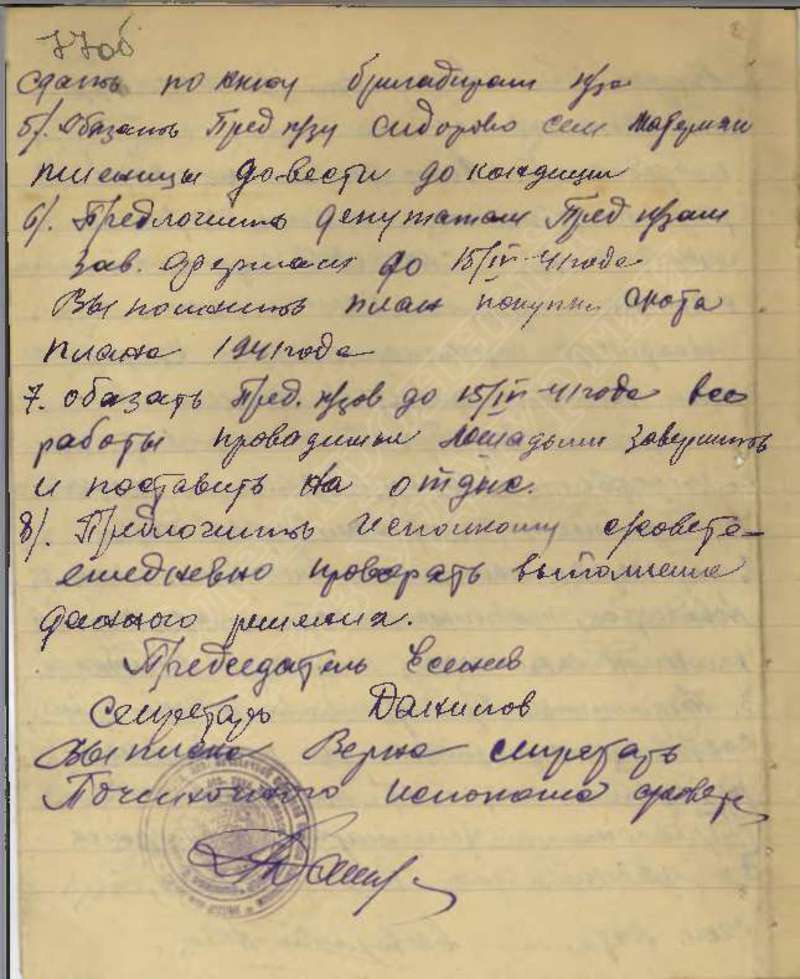 77об
сдать по акту бригадирам к/за
5/. Обазать Пред к/зу Сидорово сем материал
пшеницы довести до кондиции
6/. Предложить депутатам Пред к/зам
зав. фермам до 15/IV-41 года
Выполнить план покупки скота
плана 1941 года
7. обазать Пред. к/зов до 15/IV-41 года все
работы провадимы лошадьми завершить
и поставить на отдых.
8/. Предложить исполкому с/совета
ежедневно проверять выполнение
данного решения.
Председатель
Секретарь Данилов
Выписка Верна секретарь
исполкома с/совета